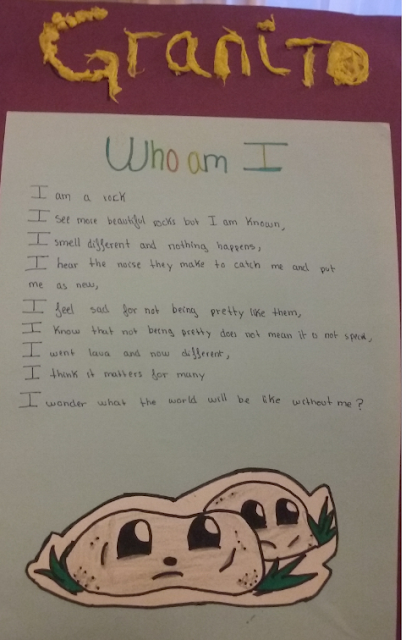 Granito
Who am I
I am a rock
I see more beautiful rocks but I am known,
I smell different and nothing happens,
I hear the noise they make to catch me and put
me as new,
I feel sad for not being pretty like them,
I know that not being pretty does not mean it is not special,
I went lava and now different,
I think it matters for many
I wonder what the world will be like without me?